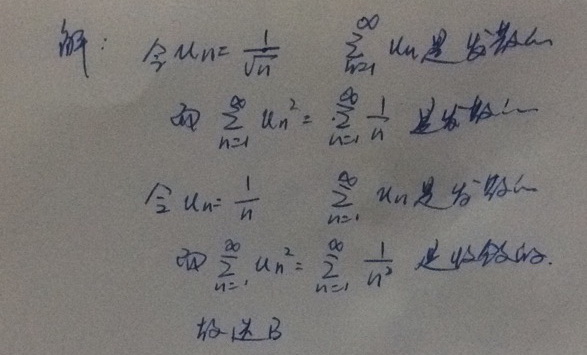 解：令 uₙ = 1/√n ∑_{n=1}^{∞} uₙ 是发散的
而 ∑_{n=1}^{∞} uₙ² = ∑_{n=1}^{∞} 1/n 是发散的
令 uₙ = 1/n ∑_{n=1}^{∞} uₙ 是发散的
而 ∑_{n=1}^{∞} uₙ² = ∑_{n=1}^{∞} 1/n² 是收敛的.
故选B